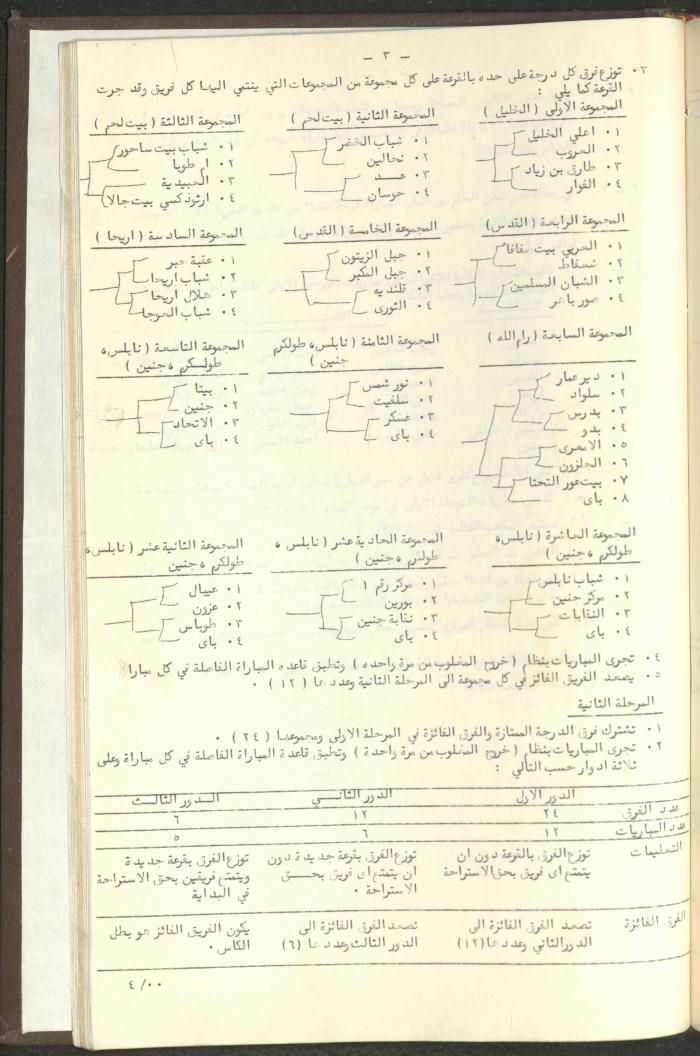 - ٣ -
٣٠ توزع فرق كل درجة على حده بالقرعة على كل مجموعة من المجموعات التي ينتمي اليها كل فريق وقد جرت
القرعة كما يلي :
المجموعة الاولى ( الخليل )
١٠ اهلي الخليل
٢٠ العروب
٣٠ طارق بن زياد
٤٠ الفوار
المجموعة الثانية ( بيت لحم )
١٠ شباب الخضر
٢٠ نحالين
٣٠
٤٠ حوسان
المجموعة الثالثة ( بيت لحم )
١٠ شباب بيت ساحور
٢٠ ام طوبا
٣٠ العبيدية
٤٠ ارثوذكسي بيت جالا
المجموعة الرابعة ( القدس )
١٠ العربي بيت صفافا
٢٠ شعفاط
٣٠ الشبان المسلمين
٤٠ صور باهر
المجموعة الخامسة ( القدس )
١٠ جبل الزيتون
٢٠ جبل المكبر
٣٠ قلنديه
٤٠ الثورى
المجموعة السادسة ( اريحا )
١٠ عقبة جبر
٢٠ شباب اريحا
٣٠ هلال اريحا
٤٠ شباب العوجا
المجموعة السابعة ( رام الله )
١٠ دير عمار
٢٠ سلواد
٣٠ بدرس
٤٠ بدو
٥٠ الامعرى
٦٠ الجلزون
٧٠ بيت عور التحتا
٨٠ باى
المجموعة الثامنة ( نابلس، طولكرم
جنين )
١٠ نور شمس
٢٠ سلفيت
٣٠ عسكر
٤٠ باى
المجموعة التاسعة ( نابلس،
طولكرم ، جنين )
١٠ بيتا
٢٠ جنين
٣٠ الاتحاد
٤٠ باى
المجموعة العاشرة ( نابلس،
طولكرم ، جنين )
١٠ شباب نابلس
٢٠ مركز جنين
٣٠ النقابات
٤٠ باى
المجموعة الحادية عشر ( نابلس ،
طولكرم ، جنين )
١٠ مركز رقم ١
٢٠ بورين
٣٠ نقابة جنين
٤٠ باى
المجموعة الثانية عشر ( نابلس،
طولكرم ، جنين
١٠ عيبال
٢٠ عزون
٣٠ طوباس
٤٠ باى
٤٠ تجرى المباريات بنظام ( خروج المغلوب من مرة واحده ) وتطبق قاعده المباراة الفاصلة في كل مبارا
٥٠ يصعد الفريق الفائز في كل مجموعة الى المرحلة الثانية وعددها ( ١٢ ) ٠
المرحلة الثانية
١٠ تشترك فرق الدرجة الممتازة والفرق الفائزة في المرحلة الاولى ومجموعها ( ٢٤ ) ٠
٢٠ تجرى المباريات بنظام ( خروج المغلوب من مرة واحدة ) وتطبق قاعدة المباراة الفاصلة في كل مباراة وعلى
ثلاثة ادوار حسب التالي :
الدور الاول الدور الثانـــي الــدور الثالــث
عدد الفرق ٢٤ ١٢ ٦
عدد المباريات ١٢ ٦ ٥
التعليمات توزع الفرق بالقرعة دون ان توزع الفرق بقرعة جديدة دون توزع الفرق بقرعة جديدة
يتمتع اى فريق بحق الاستراحة ان يتمتع اى فريق بحــق ويتمتع فريقين بحق الاستراحة
الاستراحة ٠ في البداية
الفرق الفائزة تصعد الفرق الفائزة الى تصعد الفرق الفائزة الى يكون الفريق الفائز هو بطل
الدور الثاني وعددها (١٢) الدور الثالث وعددها (٦) الكاس ٠
٤/٠٠